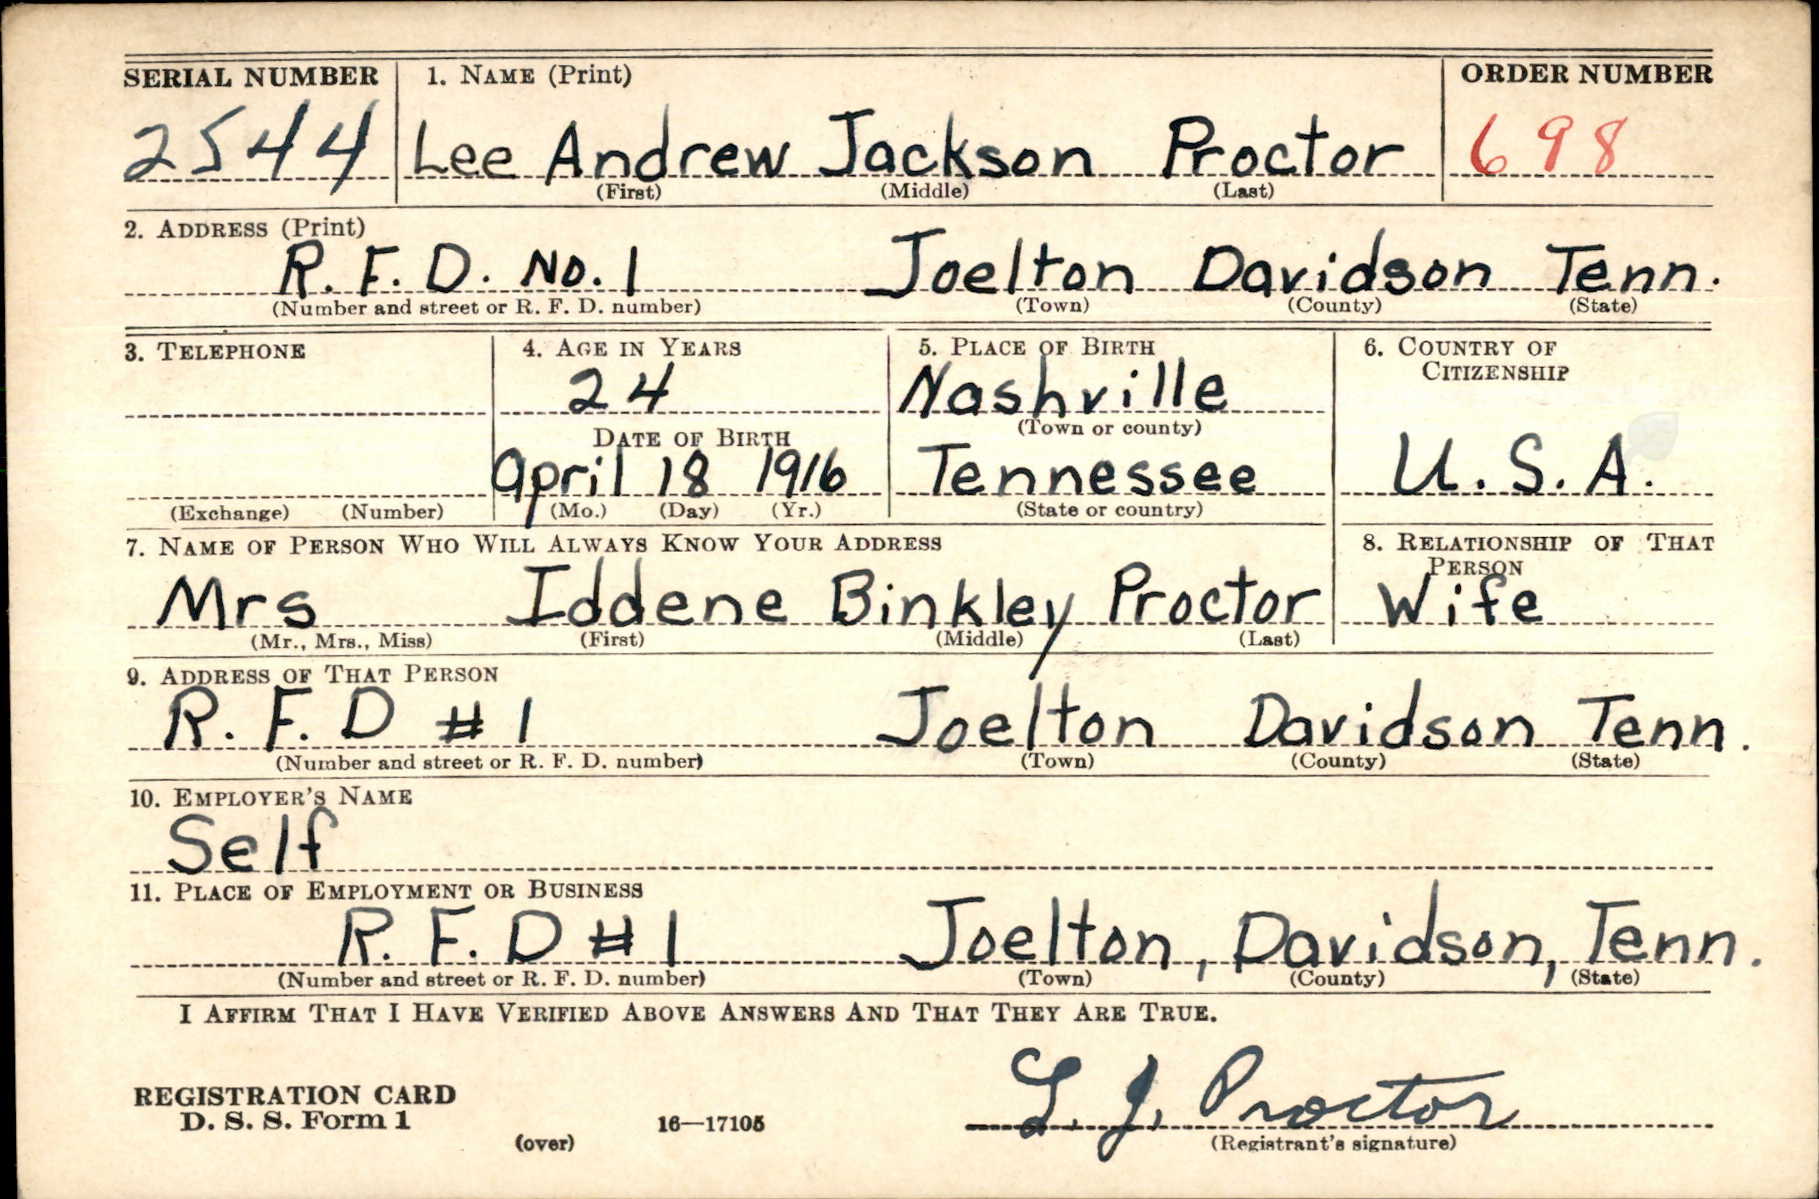 SERIAL NUMBER 1. NAME (Print) ORDER NUMBER
2544 Lee Andrew Jackson Proctor 698
(First) (Middle) (Last)
2. ADDRESS (Print)
R. F. D. No. 1 Joelton Davidson Tenn.
(Number and street or R. F. D. number) (Town) (County) (State)
3. TELEPHONE 4. AGE IN YEARS 5. PLACE OF BIRTH 6. COUNTRY OF
CITIZENSHIP
24 Nashville
(Town or county)
DATE OF BIRTH
April 18 1916 Tennessee U. S. A.
(Exchange) (Number) (Mo.) (Day) (Yr.) (State or country)
7. NAME OF PERSON WHO WILL ALWAYS KNOW YOUR ADDRESS 8. RELATIONSHIP OF THAT
PERSON
Mrs Iddene Binkley Proctor Wife
(Mr., Mrs., Miss) (First) (Middle) (Last)
9. ADDRESS OF THAT PERSON
R. F. D # 1 Joelton Davidson Tenn.
(Number and street or R. F. D. number) (Town) (County) (State)
10. EMPLOYER'S NAME
Self
11. PLACE OF EMPLOYMENT OR BUSINESS
R. F. D # 1 Joelton, Davidson, Tenn.
(Number and street or R. F. D. number) (Town) (County) (State)
I AFFIRM THAT I HAVE VERIFIED ABOVE ANSWERS AND THAT THEY ARE TRUE.
L. J. Proctor
REGISTRATION CARD
D. S. S. Form 1 16—17105
(over) (Registrant's signature)